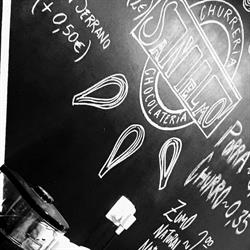 SERRANO
(+ 0,50€)
CHURRERIA
SANTELMO
CHOCOLATERIA
PORRA
CHURRO ~ 0,35
ZUMO
NATURAL